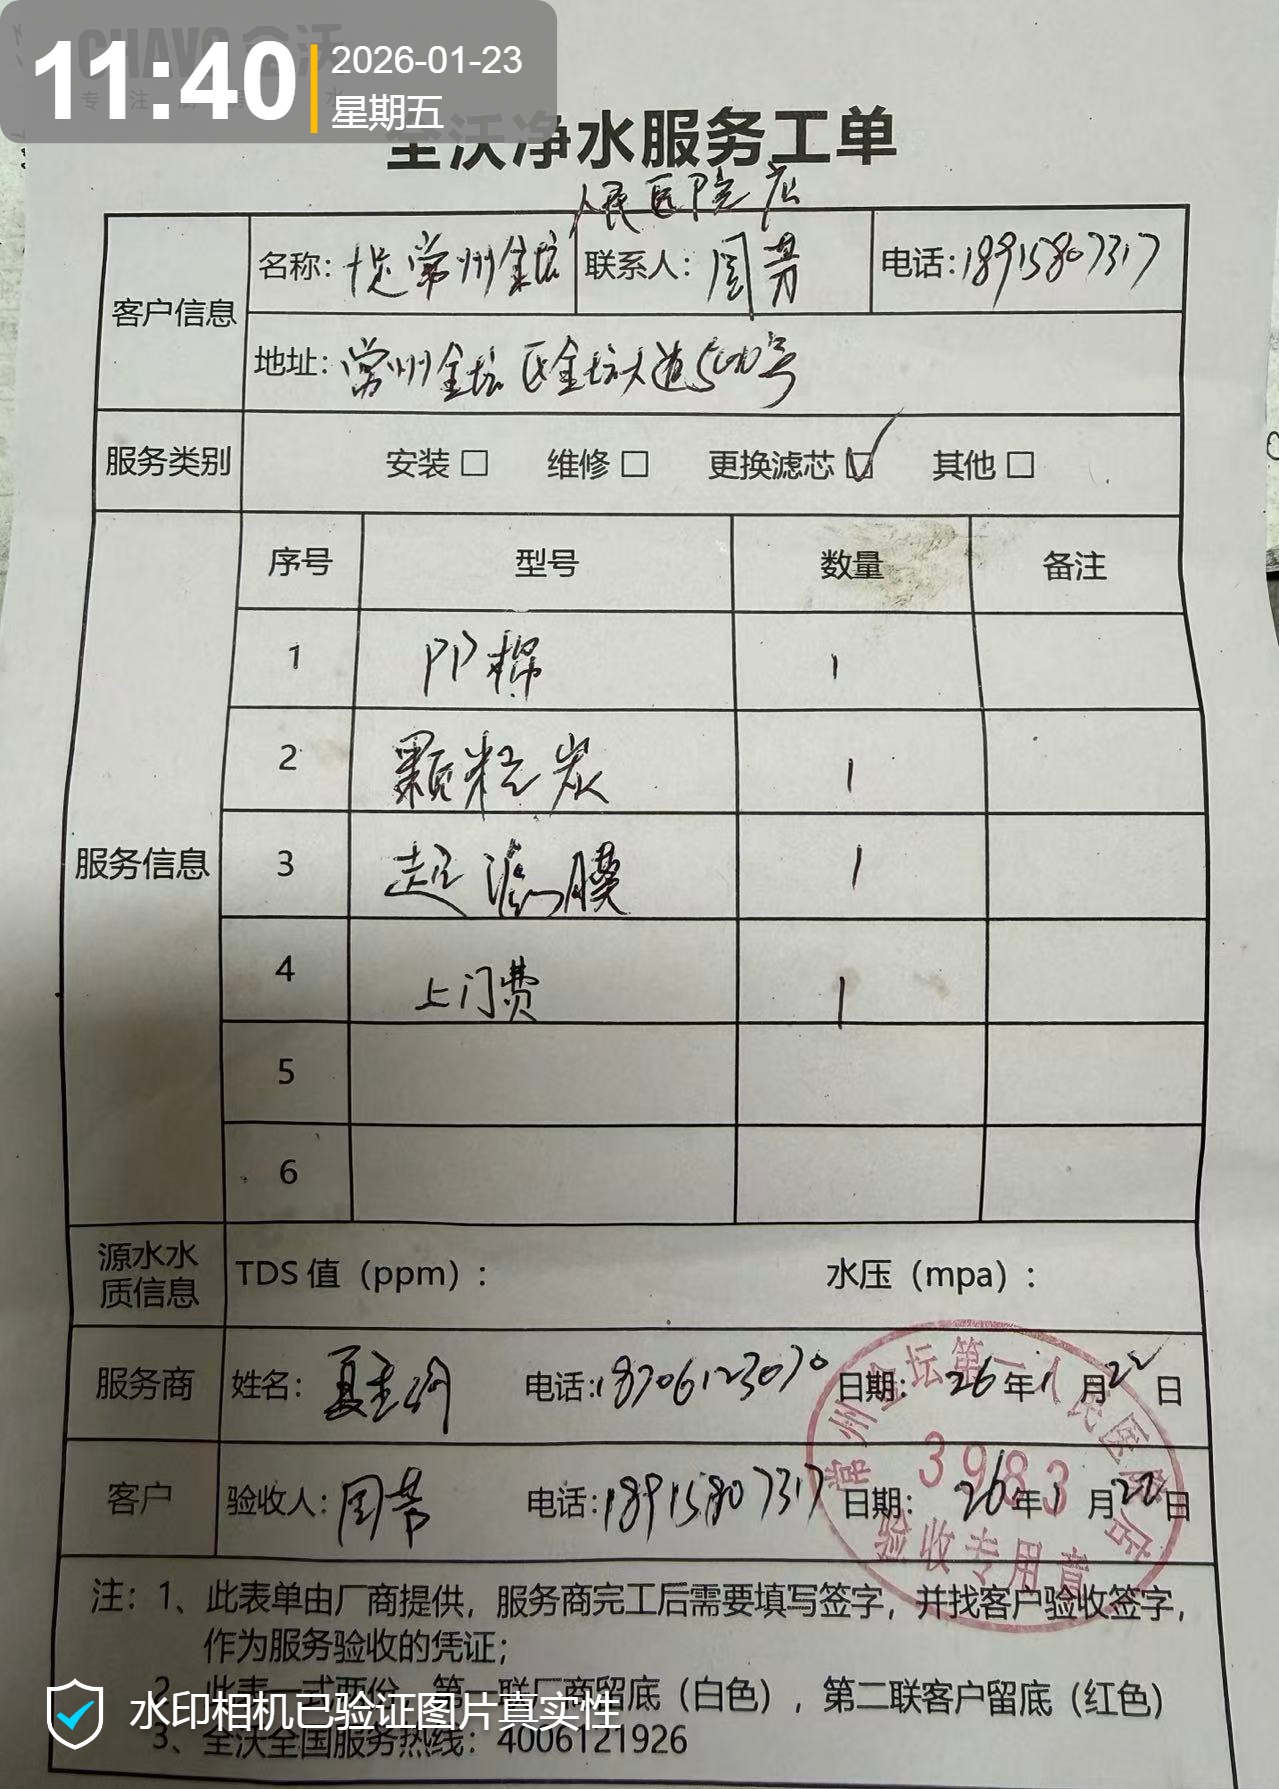 11:40
2026-01-23
星期五
CHAVO 全沃
全沃净水服务工单
人民医院店
客户信息
名称：常州金坛
联系人：周芳
电话：18915807317
地址：常州金坛区金坛大道500号
服务类别
安装□ 维修□ 更换滤芯☑ 其他□
服务信息
序号 型号 数量 备注
1 PP棉 1
2 颗粒炭 1
3 超滤膜 1
4 上门费 1
5
6
源水水质信息
TDS 值（ppm）：
水压（mpa）：
服务商
姓名：夏
电话：18706123070
日期：26年1月22日
客户
验收人：周芳
电话：18915807317
日期：26年1月22日
常州金坛第一人民医院店
3983
验收专用章
注：1、此表单由厂商提供，服务商完工后需要填写签字，并找客户验收签字，
作为服务验收的凭证；
2、此表一式两份，第一联厂商留底（白色），第二联客户留底（红色）
3、全沃全国服务热线：4006121926
水印相机已验证图片真实性